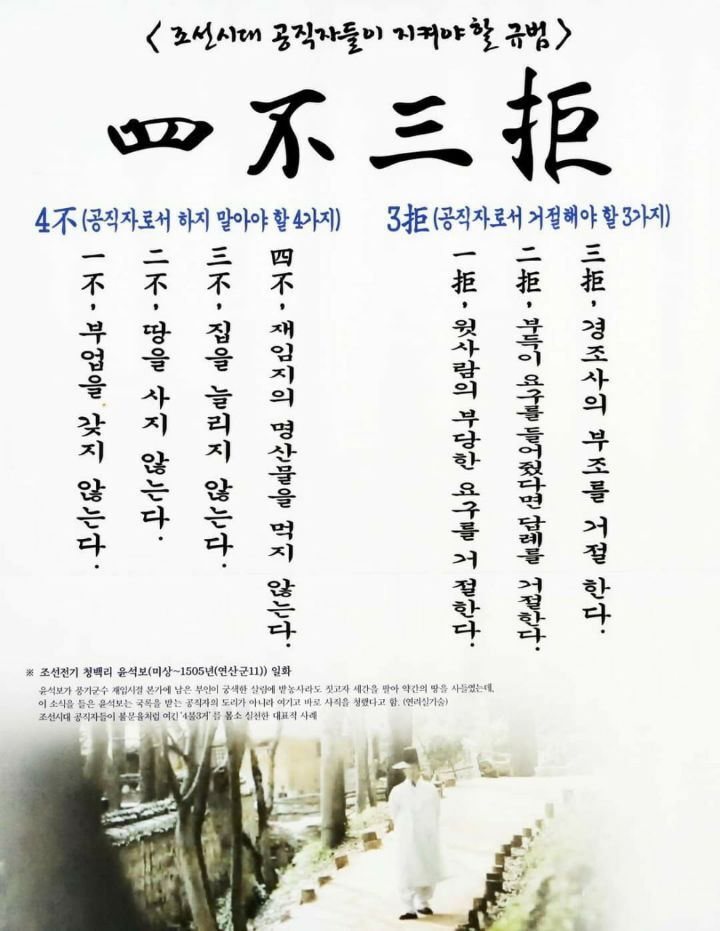 < 조선시대 공직자들이 지켜야 할 규범 >
四不三拒
4不(공직자로서 하지 말아야 할 4가지)
一不, 부업을 갖지 않는다.
二不, 땅을 사지 않는다.
三不, 집을 늘리지 않는다.
四不, 재임지의 명산물을 먹지 않는다.
3拒(공직자로서 거절해야 할 3가지)
一拒, 윗사람의 부당한 요구를 거절한다.
二拒, 부득이 요구를 들어줬다면 답례를 거절한다.
三拒, 경조사의 부조를 거절 한다.
※ 조선전기 청백리 윤석보(미상~1505년(연산군11)) 일화
윤석보가 풍기군수 재임시절 본가에 남은 부인이 궁색한 살림에 밭농사라도 짓고자 세간을 팔아 약간의 땅을 사들였는데,
이 소식을 들은 윤석보는 국록을 받는 공직자의 도리가 아니라 여기고 바로 사직을 청했다고 함. (연려실기술)
조선시대 공직자들이 불문율처럼 여긴 '4불3거' 를 몸소 실천한 대표적 사례